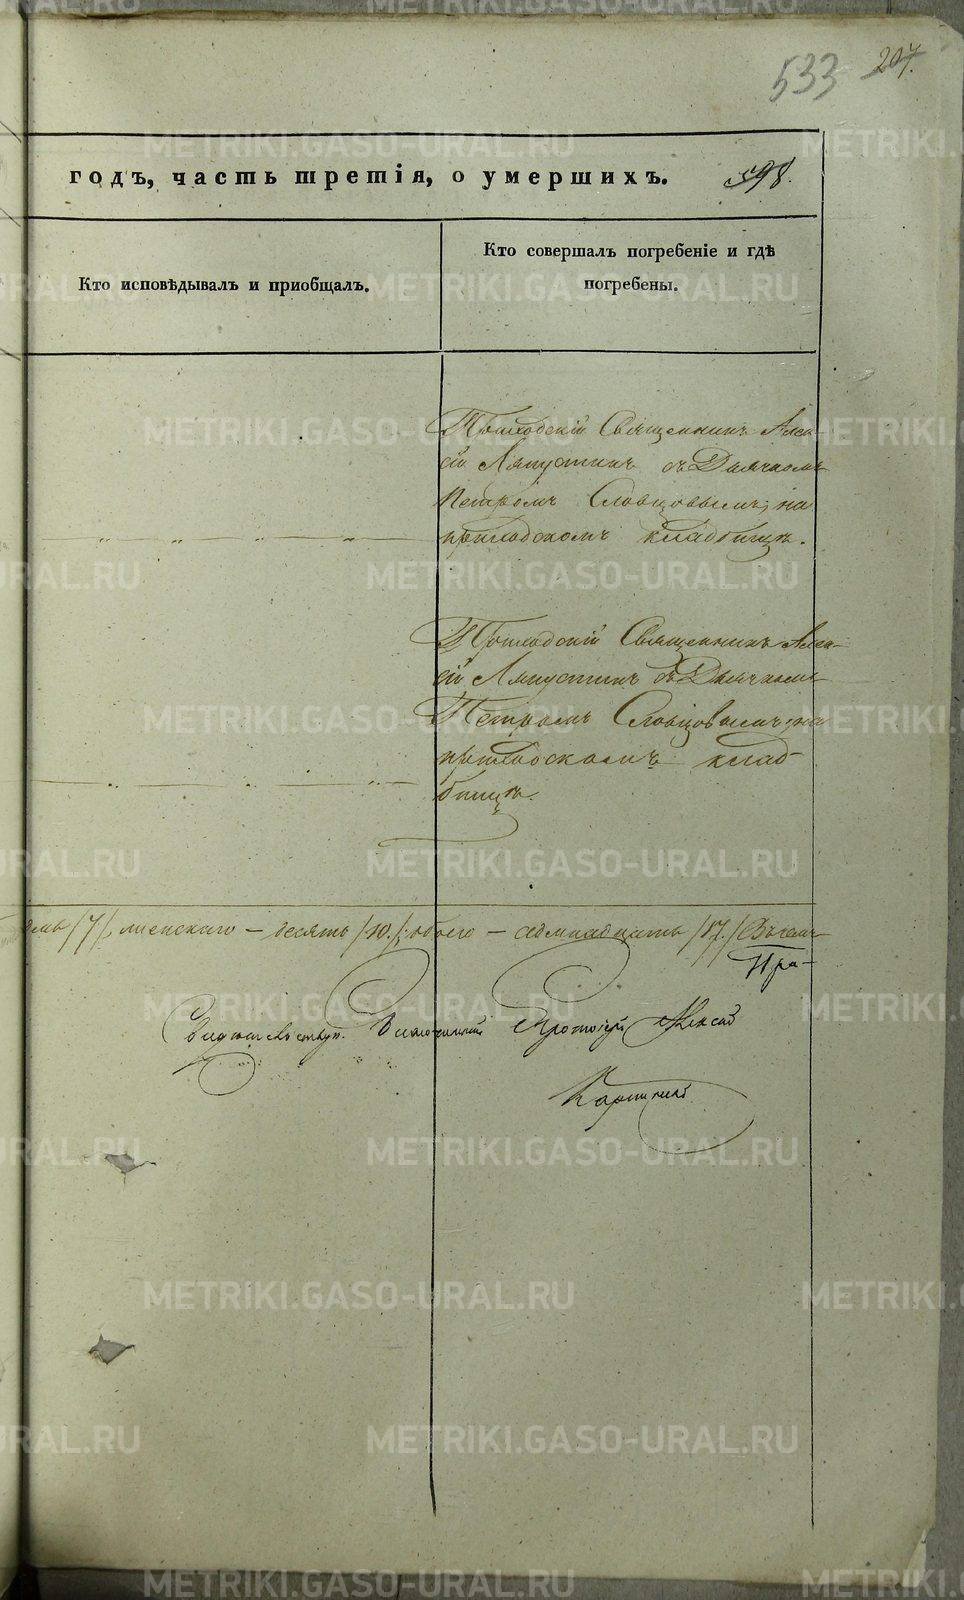 533 207.
годъ, часть третія, о умершихъ. 598.
Кто исповѣдывалъ и пріобщалъ.
Кто совершалъ погребеніе и гдѣ
погребены.
Приходскій Священникъ Алек-
сій Ляпустинъ съ Дьячкомъ
Петромъ Словцовымъ; на
приходскомъ кладбищѣ.
Приходскій Священникъ Алек-
сій Ляпустинъ съ Дьячкомъ
Петромъ Словцовымъ, на
приходскомъ клад-
бищѣ.
/7/, женскаго — десять /10./; обоего — семнадцать /17./
Пра-
Протоіерей Алексій
METRIKI.GASO-URAL.RU